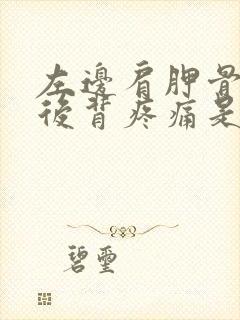 左邊肩胛骨
後背疼痛是
碧璽